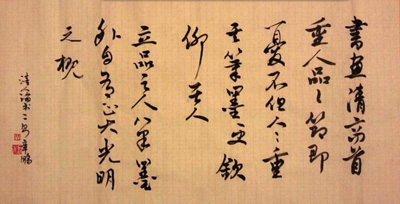 書畫清高首
重人品々節即
優不但人々重
其筆墨更欽
仰其人
立品之人筆墨
外自有正大光明
之概
清人論